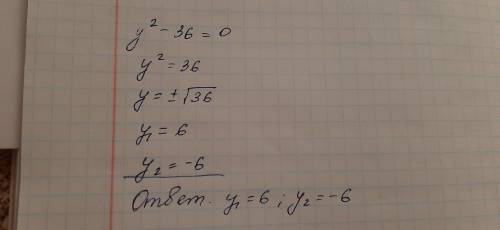 y² - 36 = 0
y² = 36
y = ± √36
y₁ = 6
y₂ = -6
Ответ. y₁ = 6 ; y₂ = -6